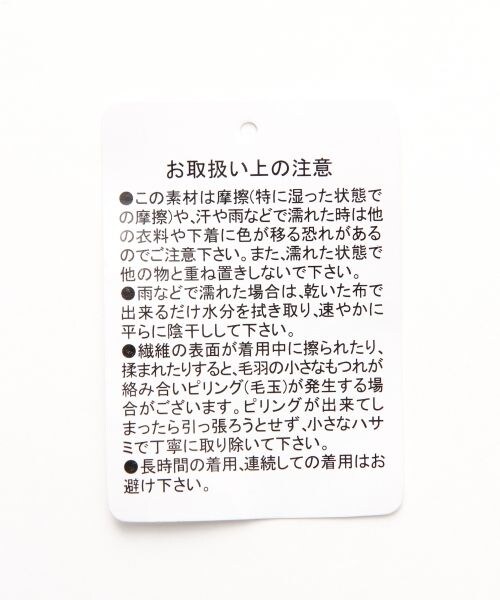 お取扱い上の注意
●この素材は摩擦(特に湿った状態で
の摩擦)や、汗や雨などで濡れた時は他
の衣料や下着に色が移る恐れがある
のでご注意下さい。また、濡れた状態で
他の物と重ね置きしないで下さい。
●雨などで濡れた場合は、乾いた布で
出来るだけ水分を拭き取り、速やかに
平らに陰干しして下さい。
●繊維の表面が着用中に擦られたり、
揉まれたりすると、毛羽の小さなもつれが
絡み合いピリング(毛玉)が発生する場
合がございます。ピリングが出来てし
まったら引っ張ろうとせず、小さなハサ
ミで丁寧に取り除いて下さい。
●長時間の着用、連続しての着用はお
避け下さい。